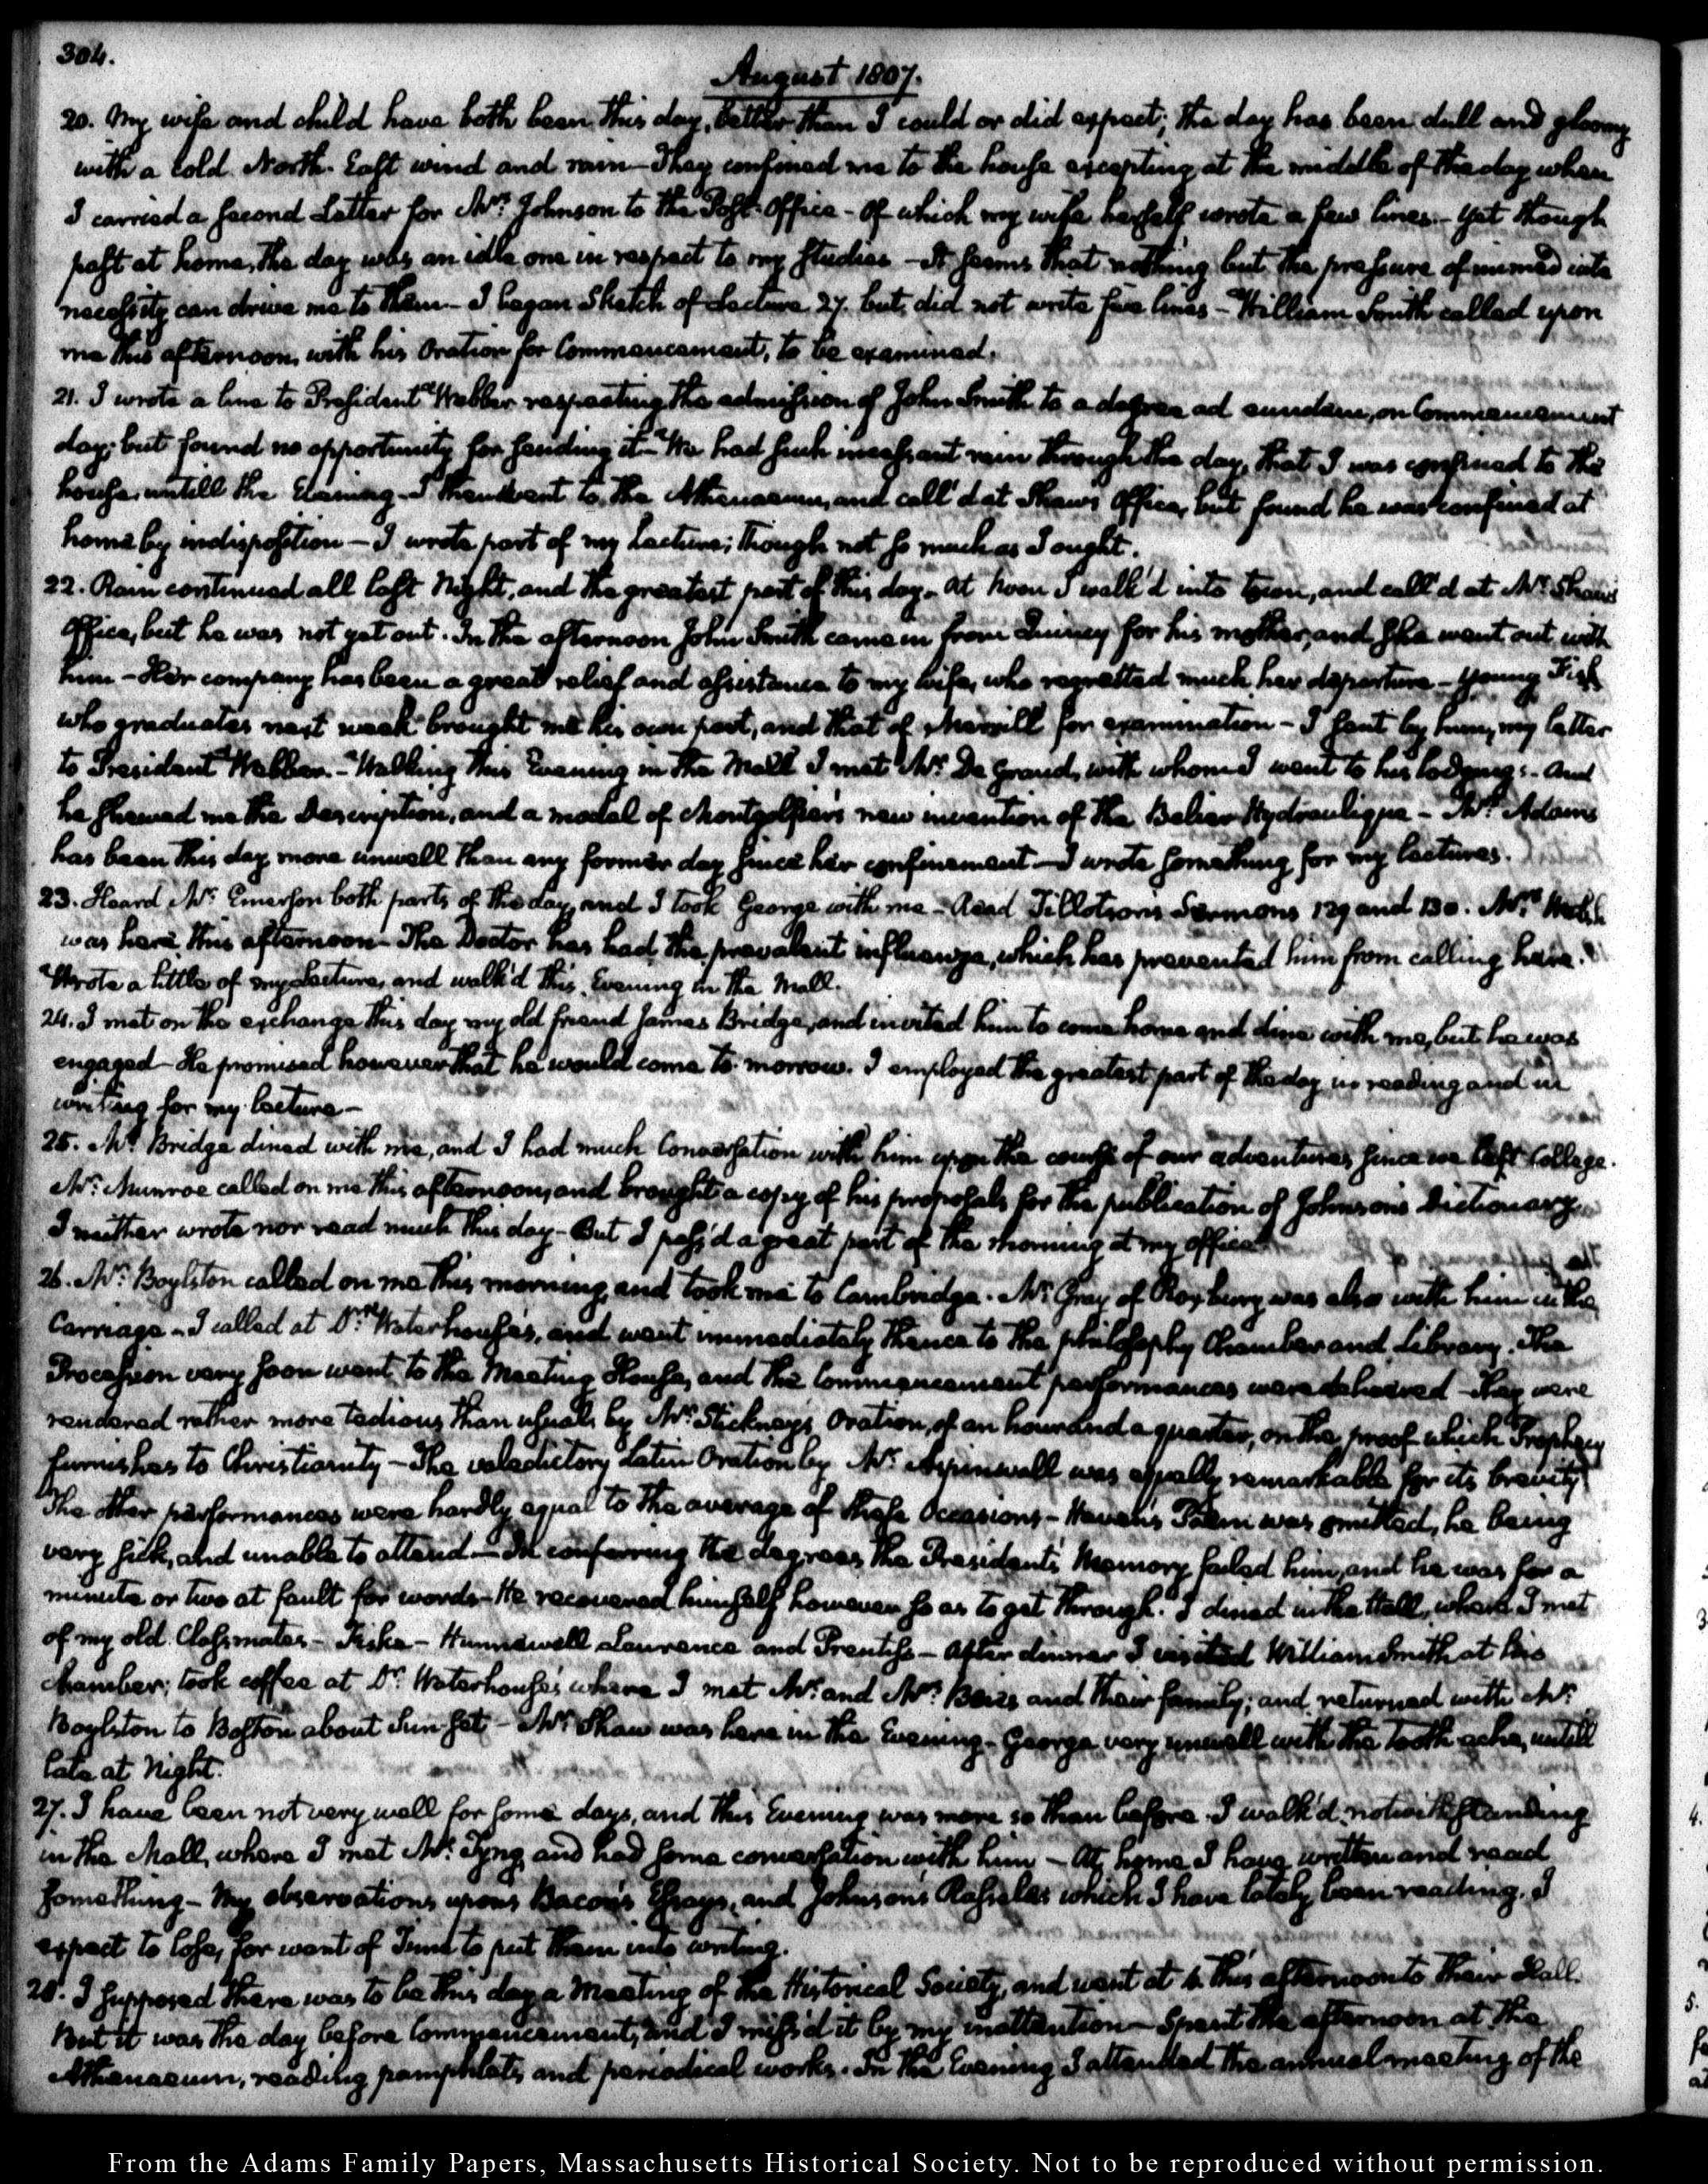 304.
August 1807.
20. My wife and child have both been this day, better than I could or did expect; the day has been dull and gloomy
with a cold North-East wind and rain—They confined me to the house excepting at the middle of the day when
I carried a second Letter for Mrs: Johnson to the Post-Office—Of which my wife herself wrote a few lines.—Yet though
past at home, the day was an idle one in respect to my studies—It seems that nothing but the pressure of immediate
necessity can drive me to them—I began Sketch of Lecture 27. but did not write five lines—William Smith called upon
me this afternoon, with his Oration for Commencement, to be examined.
21. I wrote a line to President Webber respecting the admission of John Smith to a degree ad eundem, on Commencement
day; but found no opportunity for sending it—We had such incessant rain through the day, that I was confined to the
house, untill the Evening—I then went to the Athenaeum, and call'd at Shaw's Office, but found he was confined at
home by indisposition—I wrote part of my Lecture; though not so much as I ought.
22. Rain continued all last Night, and the greatest part of this day—At Noon I walk'd into town, and call'd at Mr: Shaw's
Office, but he was not yet out. In the afternoon John Smith came in from Quincy for his mother, and she went out with
him—Her company has been a great relief and assistance to my wife, who regretted much her departure—Young Fisk
who graduates next week brought me his own part, and that of Merrill for examination—I sent by him, my letter
to President Webber.—Walking this Evening in the Mall I met Mr: De Grand, with whom I went to his lodgings—And
he shewed me the Description, and a model of Montgolfier's new invention of the Belier Hydraulique—Mrs: Adams
has been this day more unwell than any former day since her confinement—I wrote something for my lectures.
23. Heard Mr: Emerson both parts of the day, and I took George with me—Read Tillotson's Sermons 129 and 130. Mrs: Welsh
was here this afternoon—The Doctor has had the prevalent influenza, which has prevented him from calling here.
Wrote a little of my Lecture, and walk'd this Evening in the Mall.
24. I met on the exchange this day my old friend James Bridge, and invited him to come home and dine with me, but he was
engaged—He promised however that he would come to-morrow. I employed the greatest part of the day in reading and in
writing for my lecture—
25. Mr: Bridge dined with me, and I had much Conversation with him upon the course of our adventures since we left College.
Mr: Munroe called on me this afternoon, and brought a copy of his proposals for the publication of Johnson's Dictionary.
I neither wrote nor read much this day—But I pass'd a great part of the morning at my office.
26. Mr: Boylston called on me this morning, and took me to Cambridge. Mr: Gray of Roxbury was also with him in the
Carriage—I called at Dr: Waterhouse's, and went immediately thence to the philosophy Chamber and Library. The
Procession very soon went to the Meeting House, and the Commencement performances were delivered—They were
rendered rather more tedious than usual, by Mr: Stickney's Oration, of an hour and a quarter, on the proof which Prophecy
furnishes to Christianity—The valedictory Latin Oration by Mr: Aspinwall was equally remarkable for its brevity
The other performances were hardly equal to the average of these Occasions—Haven's Poem was omitted, he being
very sick, and unable to attend—In conferring the degrees, the President's Memory failed him, and he was for a
minute or two at fault for words—He recovered himself however so as to get through. I dined in the Hall, where I met
of my old Classmates—Fiske—Hunnewell Lawrence and Prentiss—After dinner I visited William Smith at his
chamber; took coffee at Dr: Waterhouse's where I met Mr: and Mrs: and their family; and returned with Mr:
Boylston to Boston about Sun-set—Mr: Shaw was here in the Evening—George very unwell with the tooth ache, untill
late at Night.
27. I have been not very well for some days, and this Evening was more so than before. I walk'd, notwithstanding
in the Mall, where I met Mr: Tyng, and had some conversation with him—At home I have written and read
something—My observations upon Bacon's Essays, and Johnson's Rasselas which I have lately been reading, I
expect to lose, for want of Time to put them into writing.
28. I supposed there was to be this day a Meeting of the Historical Society, and went at 4. this afternoon to their Hall.
But it was the day before Commencement, and I miss'd it by my inattention—Spent the afternoon at the
Athenaeum, reading pamphlets, and periodical works. In the Evening I attended the annual meeting of the
From the Adams Family Papers, Massachusetts Historical Society. Not to be reproduced without permission.